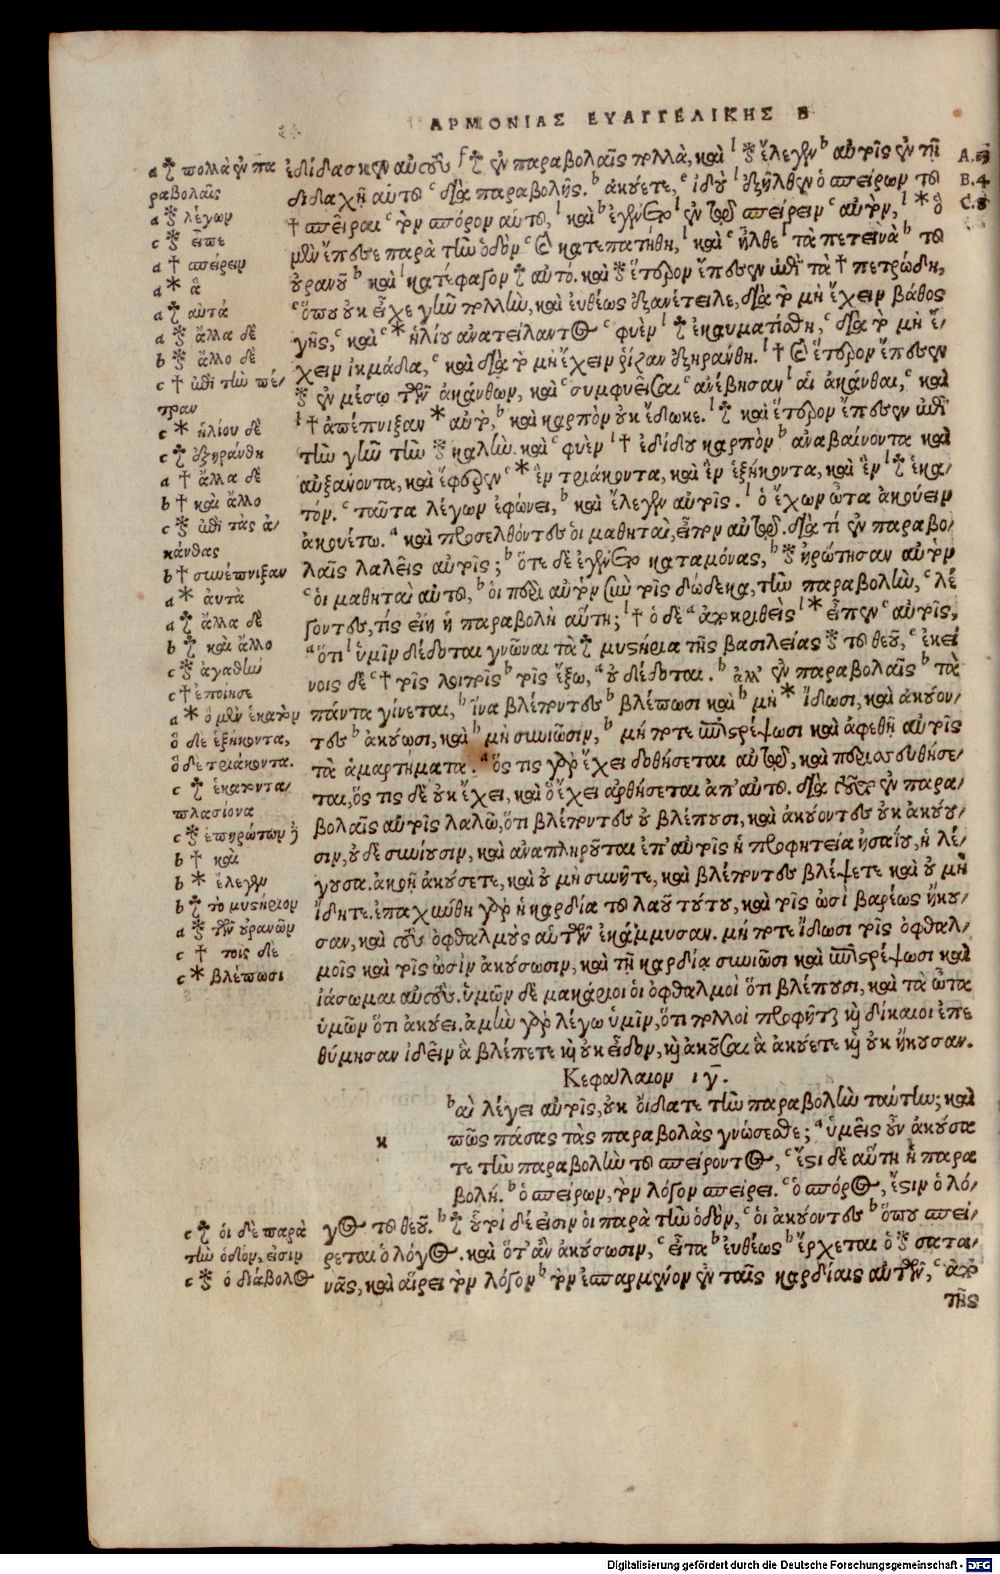 ΑΡΜΟΝΙΑΣ ΕΥΑΓΓΕΛΙΚΗΣ Β
ἐδίδασκεν αὐτοὺς f ἐν παραβολαῖς πολλὰ, καὶ l ἔλεγεν b αὐτοῖς ἐν τῇ
διδαχῇ αὑτοῦ c διὰ παραβολῆς. b ἀκούετε, c ἰδοὺ l ἐξῆλθεν ὁ σπείρων τοῦ
† σπεῖραι c τὸν σπόρον αὑτοῦ, l καὶ b ἐγένετο l ἐν τῷ σπείρειν c αὐτὸν, l * ὃ
μὲν ἔπεσε παρὰ τὴν ὁδὸν c καὶ κατεπατήθη, l καὶ c ἦλθε l τὰ πετεινὰ b τοῦ
οὐρανοῦ b καὶ l κατέφαγον αὐτό. καὶ ἕτερον ἔπεσεν ἐπὶ τὰ † πετρώδη,
c ὅπου οὐκ εἶχε γῆν πολλὴν, καὶ εὐθέως ἐξανέτειλε, διὰ τὸ μὴ ἔχειν βάθος
γῆς, c καὶ c * ἡλίου ἀνατείλαντος c φυὲν l ἐκαυματίσθη, c διὰ τὸ μὴ ἔ-
χειν ἰκμάδα, c καὶ διὰ τὸ μὴ ἔχειν ῥίζαν ἐξηράνθη. l † καὶ ἕτερον ἔπεσεν
ἐν μέσῳ τῶν ἀκάνθων, καὶ c συμφυεῖσαι c ἀνέβησαν l αἱ ἀκάνθαι, c καὶ
l † ἀπέπνιξαν * αὐτὸ, b καὶ καρπὸν οὐκ ἔδωκε. l καὶ ἕτερον ἔπεσεν ἐπὶ
τὴν γῆν τὴν καλὴν. καὶ c φυὲν l † ἐδίδου καρπὸν b ἀναβαίνοντα καὶ
αὐξάνοντα, καὶ ἔφερεν c * ἓν τριάκοντα, καὶ ἓν ἑξήκοντα, καὶ ἓν l ἑκα-
τόν. c ταῦτα λέγων ἐφώνει, b καὶ ἔλεγεν αὐτοῖς. l ὁ ἔχων ὦτα ἀκούειν
ἀκουέτω. a καὶ προσελθόντες οἱ μαθηταὶ, εἶπον αὐτῷ. διὰ τί ἐν παραβο-
λαῖς λαλεῖς αὐτοῖς; b ὅτε δὲ ἐγένετο καταμόνας, b ἠρώτησαν αὐτὸν
c οἱ μαθηταὶ αὐτοῦ, b οἱ περὶ αὐτὸν σὺν τοῖς δώδεκα, τὴν παραβολὴν, c λέ-
γοντες, τίς εἴη ἡ παραβολὴ αὕτη; l † ὁ δὲ a ἀποκριθεὶς l * εἶπεν c αὐτοῖς,
a ὅτι l ὑμῖν δέδοται γνῶναι τὰ μυστήρια τῆς βασιλείας τοῦ θεοῦ, c ἐκεί
νοις δὲ c † τοῖς λοιποῖς b τοῖς ἔξω, a οὐ δέδοται. b ἀλλ' ἐν παραβολαῖς b τὰ
πάντα γίνεται, b ἵνα βλέποντες b βλέπωσι καὶ b μὴ * ἴδωσι, καὶ ἀκούον-
τες b ἀκούωσι, καὶ b μὴ συνιῶσιν, b μή ποτε ἐπιστρέψωσι καὶ ἀφεθῇ αὐτοῖς
τὰ ἁμαρτήματα. a ὅς τις γὰρ ἔχει δοθήσεται αὐτῷ, καὶ περισσευθήσε-
ται, ὅς τις δὲ οὐκ ἔχει, καὶ ὃ ἔχει ἀρθήσεται ἀπ' αὐτοῦ. διὰ τοῦτο ἐν παρα-
βολαῖς αὐτοῖς λαλῶ, ὅτι βλέποντες οὐ βλέπουσι, καὶ ἀκούοντες οὐκ ἀκού-
σιν, οὐδὲ συνίουσιν, καὶ ἀναπληροῦται ἐπ' αὐτοῖς ἡ προφητεία ἠσαΐου, ἡ λέ-
γουσα. ἀκοῇ ἀκούσετε, καὶ οὐ μὴ συνῆτε, καὶ βλέποντες βλέψετε καὶ οὐ μὴ
ἴδητε. ἐπαχύνθη γὰρ ἡ καρδία τοῦ λαοῦ τούτου, καὶ τοῖς ὠσὶ βαρέως ἤκου-
σαν, καὶ τοὺς ὀφθαλμοὺς αὑτῶν ἐκάμμυσαν. μή ποτε ἴδωσι τοῖς ὀφθαλ-
μοῖς καὶ τοῖς ὠσὶν ἀκούσωσιν, καὶ τῇ καρδίᾳ συνιῶσι καὶ ἐπιστρέψωσι καὶ
ἰάσωμαι αὐτούς. ὑμῶν δὲ μακάριοι οἱ ὀφθαλμοὶ ὅτι βλέπουσι, καὶ τὰ ὦτα
ὑμῶν ὅτι ἀκούει. ἀμὴν γὰρ λέγω ὑμῖν, ὅτι πολλοὶ προφῆται καὶ δίκαιοι ἐπε
θύμησαν ἰδεῖν ἃ βλέπετε καὶ οὐκ εἶδον, καὶ ἀκοῦσαι ἃ ἀκούετε καὶ οὐκ ἤκουσαν.
Κεφάλαιον ιγ.
κ
b αὶ λέγει αὐτοῖς, οὐκ οἴδατε τὴν παραβολὴν ταύτην; καὶ
πῶς πάσας τὰς παραβολὰς γνώσεσθε; a ὑμεῖς οὖν ἀκούσα
τε τὴν παραβολὴν τοῦ σπείροντος, c ἔστι δὲ αὕτη ἡ παρα
βολή. b ὁ σπείρων, τὸν λόγον σπείρει. c ὁ σπόρος, ἔστιν ὁ λό-
γος τοῦ θεοῦ. b οὗτοι δέ εἰσιν οἱ παρὰ τὴν ὁδὸν, c οἱ ἀκούοντες b ὅπου σπεί-
ρεται ὁ λόγος. καὶ ὅτ' ἂν ἀκούσωσιν, c εἶτα b εὐθέως b ἔρχεται ὁ σατα-
νᾶς, καὶ αἴρει τὸν λόγον b τὸν ἐσπαρμένον ἐν ταῖς καρδίαις αὐτῶν, c ἀπὸ
τῆς
a πολλὰ ἐν πα
ραβολαῖς
a λέγων
c εἶπε
a † σπείρειν
a * ἃ
a αὐτά
a ἄλλα δὲ
b ἄλλο δὲ
c † ἐπὶ τὴν πέ-
τραν
c * ἡλίου δὲ
c ἐξηράνθη
a † ἄλλα δὲ
b † καὶ ἄλλο
c ἐπὶ τὰς ἀ-
κάνθας
b † συνέπνιξαν
a * αὐτὰ
a ἄλλα δὲ
b καὶ ἄλλο
c ἀγαθὴν
c † ἐποίησε
a * ὃ μὲν ἑκατὸν
ὃ δὲ ἑξήκοντα,
ὃ δὲ τριάκοντα.
c ἑκατοντα-
πλασίονα
c ἐπηρώτων
b † καὶ
b * ἔλεγεν
b τὸ μυστήριον
a τῶν οὐρανῶν
c † τοῖς δὲ
c * βλέπωσι
c οἱ δὲ παρὰ
τὴν ὁδὸν, εἰσιν
c ὁ διάβολος
B.4
C.8
Digitalisierung gefördert durch die Deutsche Forschungsgemeinschaft - DFG